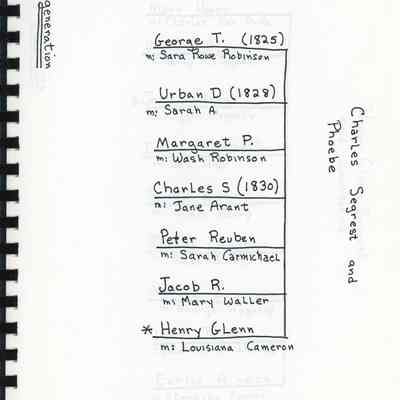 generation
George T. (1825)
m: Sara Rowe Robinson
Urban D (1828)
m: Sarah A
Margaret P.
m: Wash Robinson
Charles S (1830)
m: Jane Arant
Peter Reuben
m: Sarah Carmichael
Jacob R.
m: Mary Waller
* Henry GLenn
m: Louisiana Cameron
Charles Segrest and
Phoebe